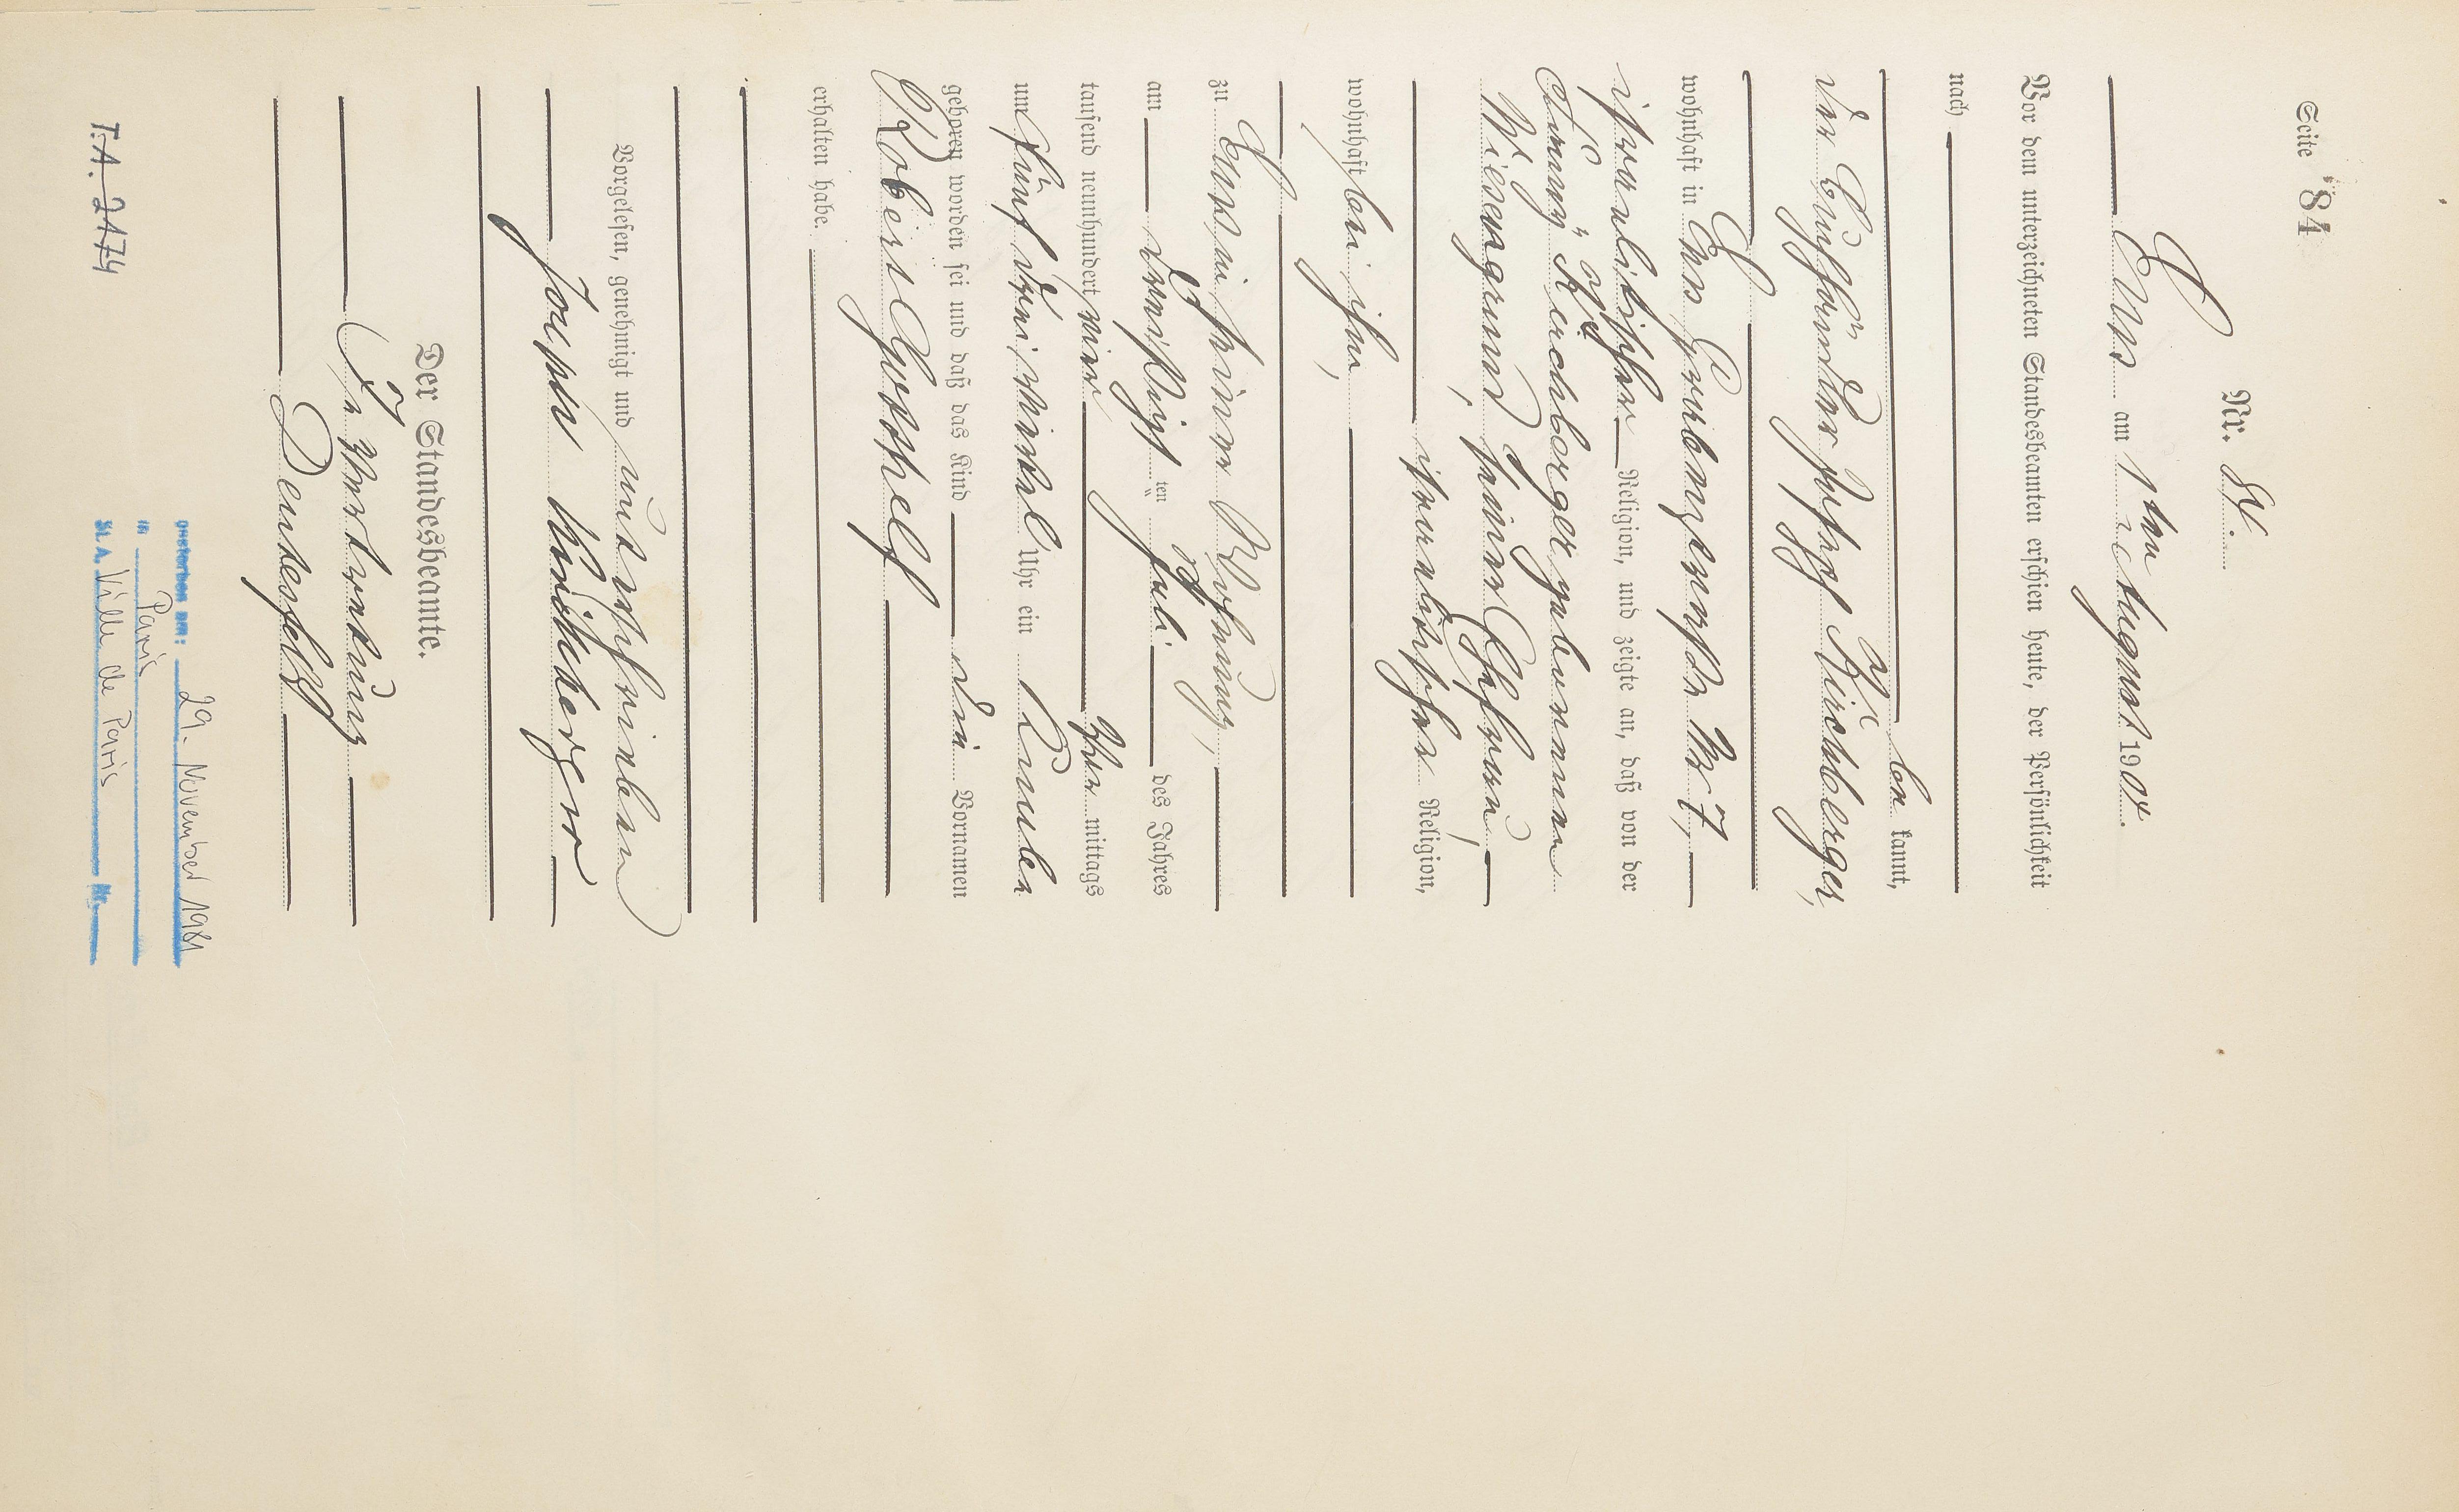 Seite 84
Nr. 84.
Ems am 1ten August 1904.
Vor dem unterzeichneten Standesbeamten erschien heute, der Persönlichkeit
nach
be kannt,
der Buchhändler Joseph Kirchberger,
wohnhaft in Ems Grabenstraße Nr 7,
israelitischer Religion, und zeigte an, daß von der
Fanny Kirchberger geborenen
Wiesengrund, seiner Ehefrau,
israelitischer Religion,
wohnhaft bei ihm,
zu Ems in seiner Wohnung,
am dreißigsten Juli des Jahres
tausend neunhundert vier Vor mittags
um fünf drei viertel Uhr ein Knabe
geboren worden sei und daß das Kind den Vornamen
Robert
erhalten habe.
Vorgelesen, genehmigt und unterschrieben
Joseph Kirchberger
Der Standesbeamte.
In Vertretung
T.A. 2174
Gestorben am: 29. November 1981
in Paris
St. A. Ville de Paris Nr.